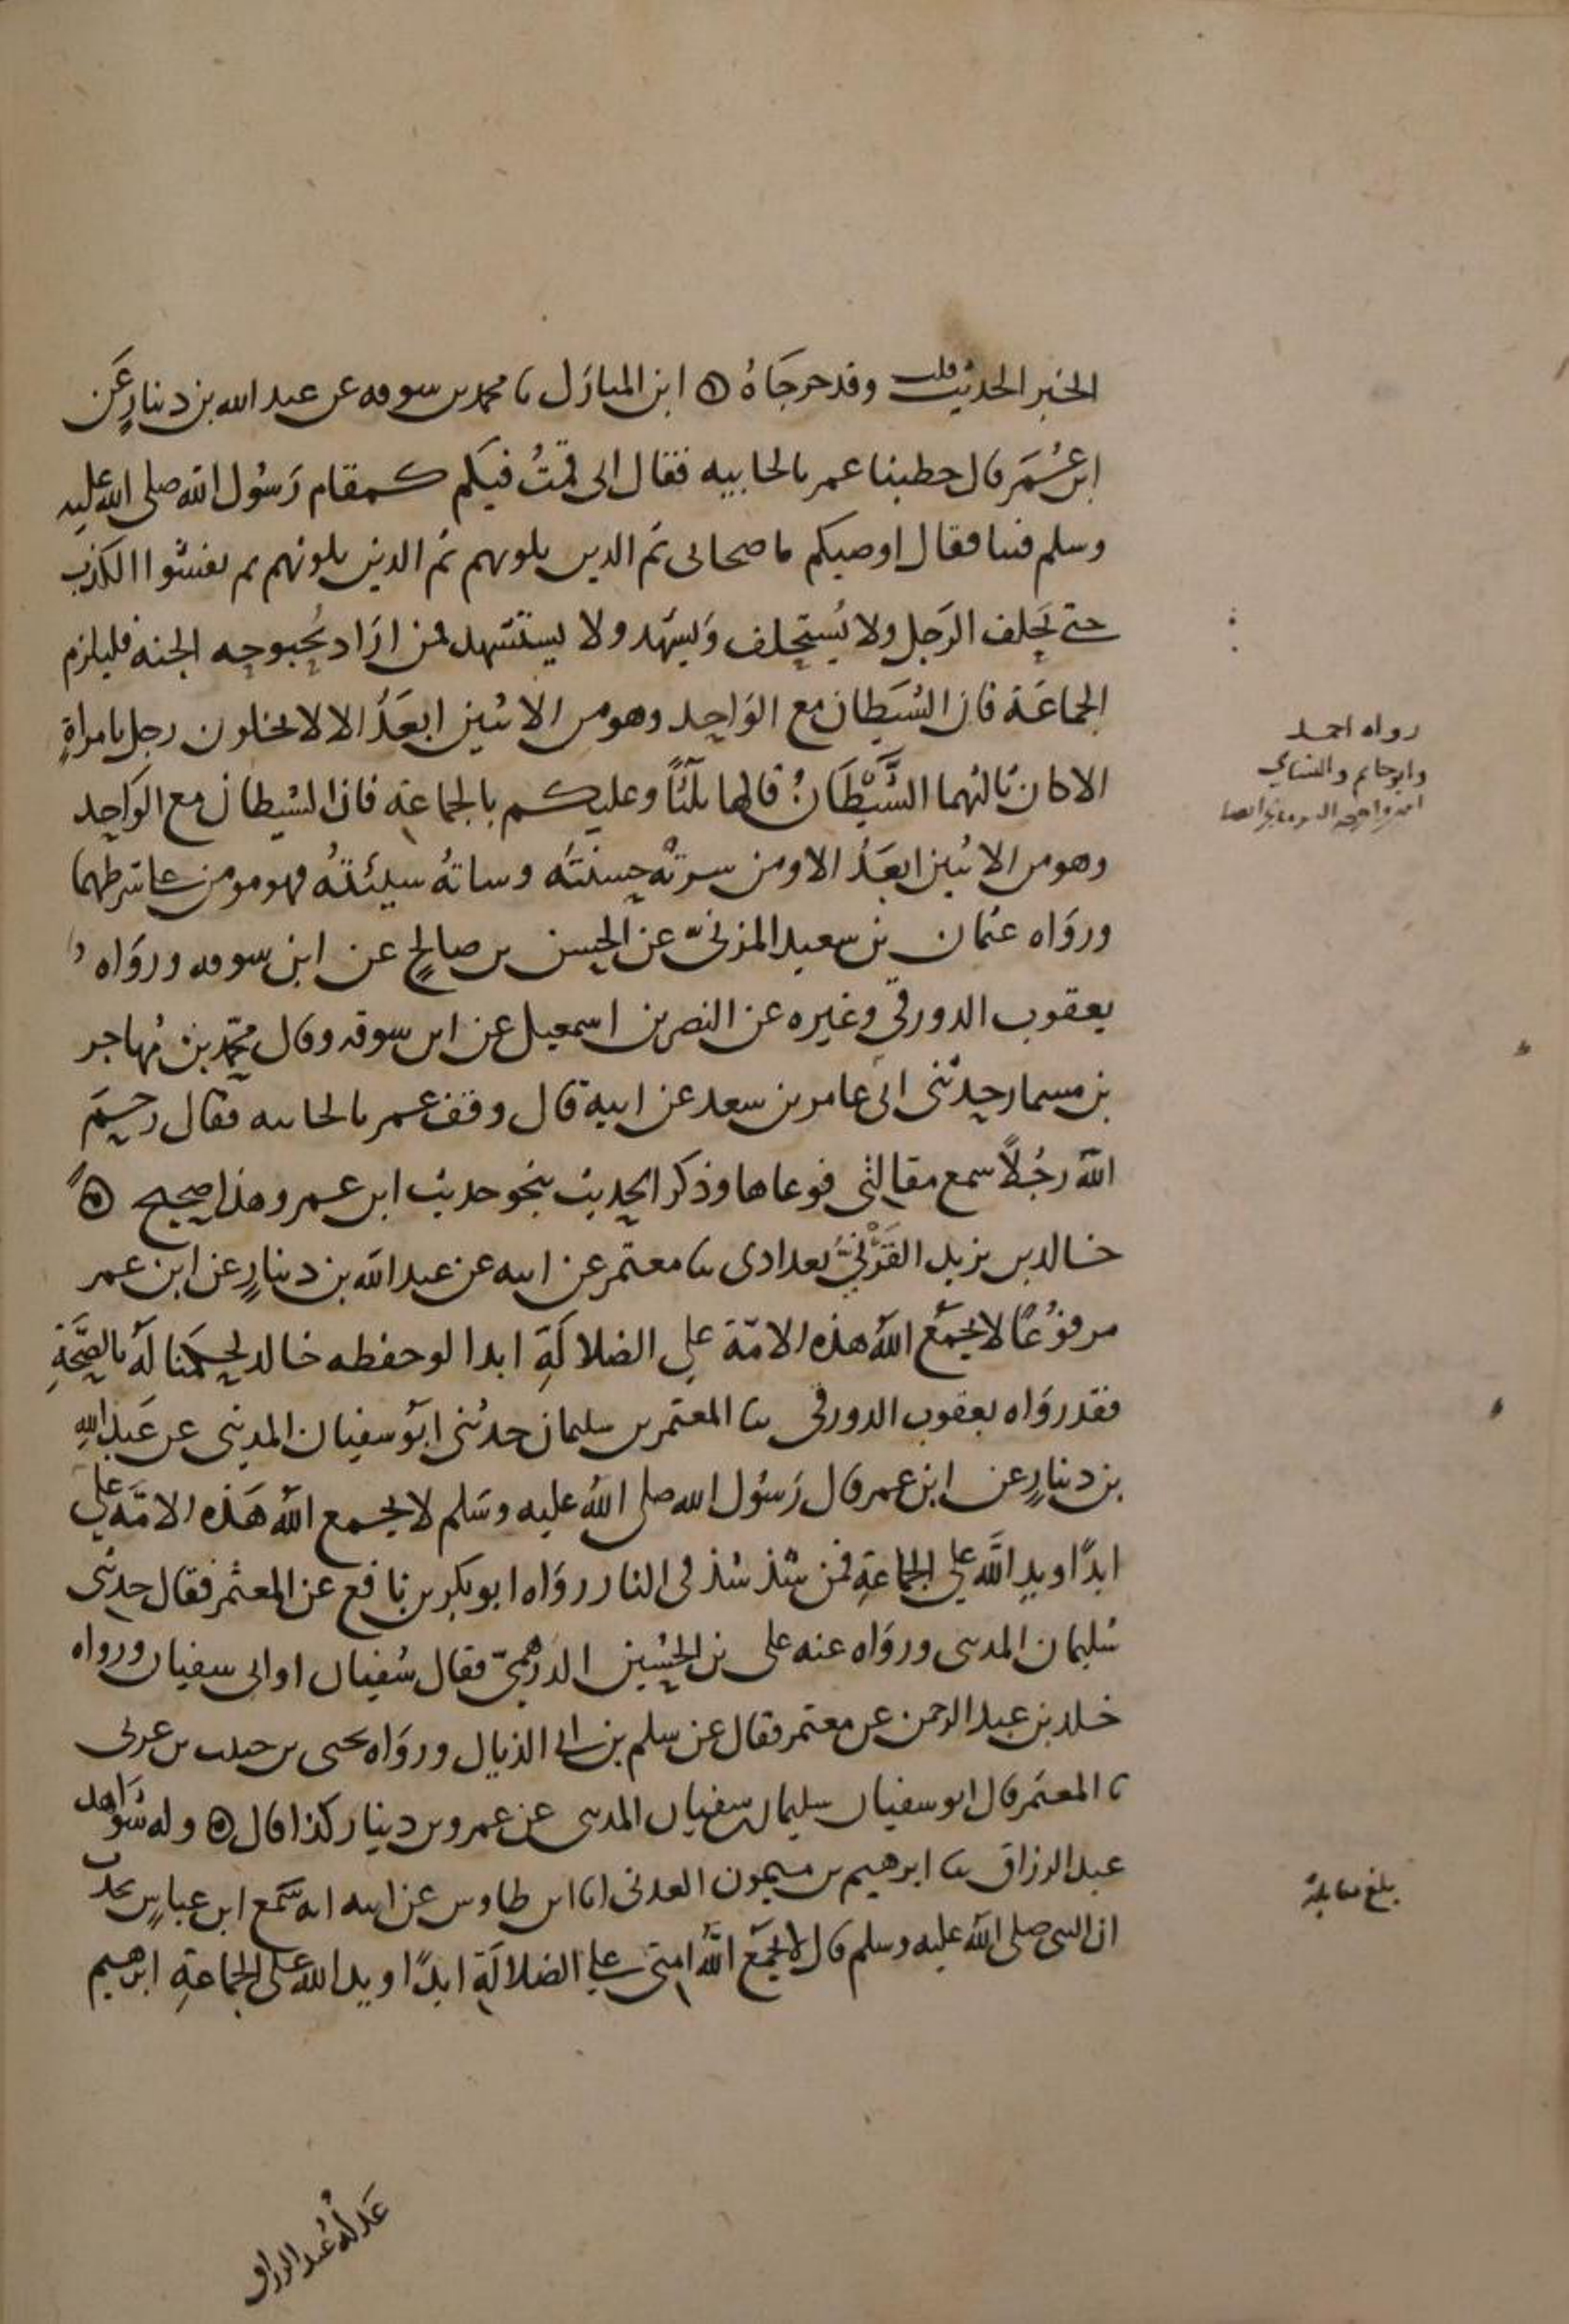 الخبر الحديث قلت وقد خرجاه ابن المبارك نا محمد بن سوقه عن عبد الله بن دينارٍ عَن
ابن عُمَر قال خطبنا عمر بالجابيه فقال انى قمتُ فيكم كمقام رَسُول الله صلى الله عليه
وسلم فينا فقال اوصيكم باصحابى ثم الذين يلونهم ثم الذين يلونهم ثم يفشوا الكذب
حتى يحلف الرَجل ولا يُستحلف وَيشهد ولا يستشهد فمن ارَاد بُحبوحه الجنه فليلزم
الجماعَة فان الشيَطان مع الوَاحد وهو من الاثنين ابعَدُ الا لا يخلون رجل بامراةٍ
الا كان ثالثهما الشَّيْطَانُ قالها ثلثًا وعليكم بالجماعة فان الشيطان مع الوَاحد
وهو من الاثنين ابعَدُ الا ومن سرتْه حسنتُه وساتهُ سيئتهُ فهو مومن على شرطهما
وروَاه عثمان بن سعيد المزنىّ عن الحسن بن صالحٍ عن ابن سوقه وروَاه
يعقوب الدورقي وغيره عن النضر بن اسمعيل عن ابن سوقه وقال محمّد بن مُهاجر
بن مسمار حدثنى ابى عامر بن سعد عن ابيه قال وقف عمر بالجابيه فقال رحمَ
اللّه رجُلاً سمع مقالتى فوعاها وذكر الحديث بنحو حديث ابن عمر وهذا صحيح
خالد بن يزيد القَرْنىُّ بغدادى نا معتمر عن ابيه عن عبد اللّه بن دينارٍ عن ابن عمر
مرفوُعًا لا يجمَع اللّهُ هذه الامّة على الضلالَةِ ابدا لو حفظه خالد لحكمَنا لهُ بالصِّحَّةِ
فقد روَاه يعقوب الدورقى نا المعتمر بن سليمان حدثنى ابَو سفيان المدينى عن عَبد اللهِ
بن دينارٍ عن ابن عمر قال رَسُول الله صلى اللهُ عليه وسَلم لا يجمع اللّهُ هَذه الامّة على
ابدًا ويد اللَّه على الجماعَةِ فمن شذ شذ فى النار روَاه ابو بكر بن نافع عن المعتمر فقال حدثنى
سُليمان المدنى وروَاه عنه على بن الحُسين الدرهمىّ فقال سُفيان او ابى سفيان ورواه
خلد بن عبد الرحمن عن معتمر فقال عن سلم بن ابى الذيال وروَاه يحيى بن حبيب بن عربى
نا المعتمر قال ابو سفيان سليمان بن سفيان المدنى عن عمرو بن دينار كذا قال وله شوَاهد
عبد الرزاق نا ابرهيم بن ميمون العدنى انا ابن طاوس عن ابيه انه سَمع ابن عباسٍ يحدث
ان النبى صلى اللّه عليه وسلم قال لا يجمَع اللّهُ امتى على الضلالَة ابدًا ويد الله على الجماعَةِ ابرهيم
عَدلهُ عبد الرزاق
رواه احمد
وابو حاتم والنسائي
بلغ مقابلة